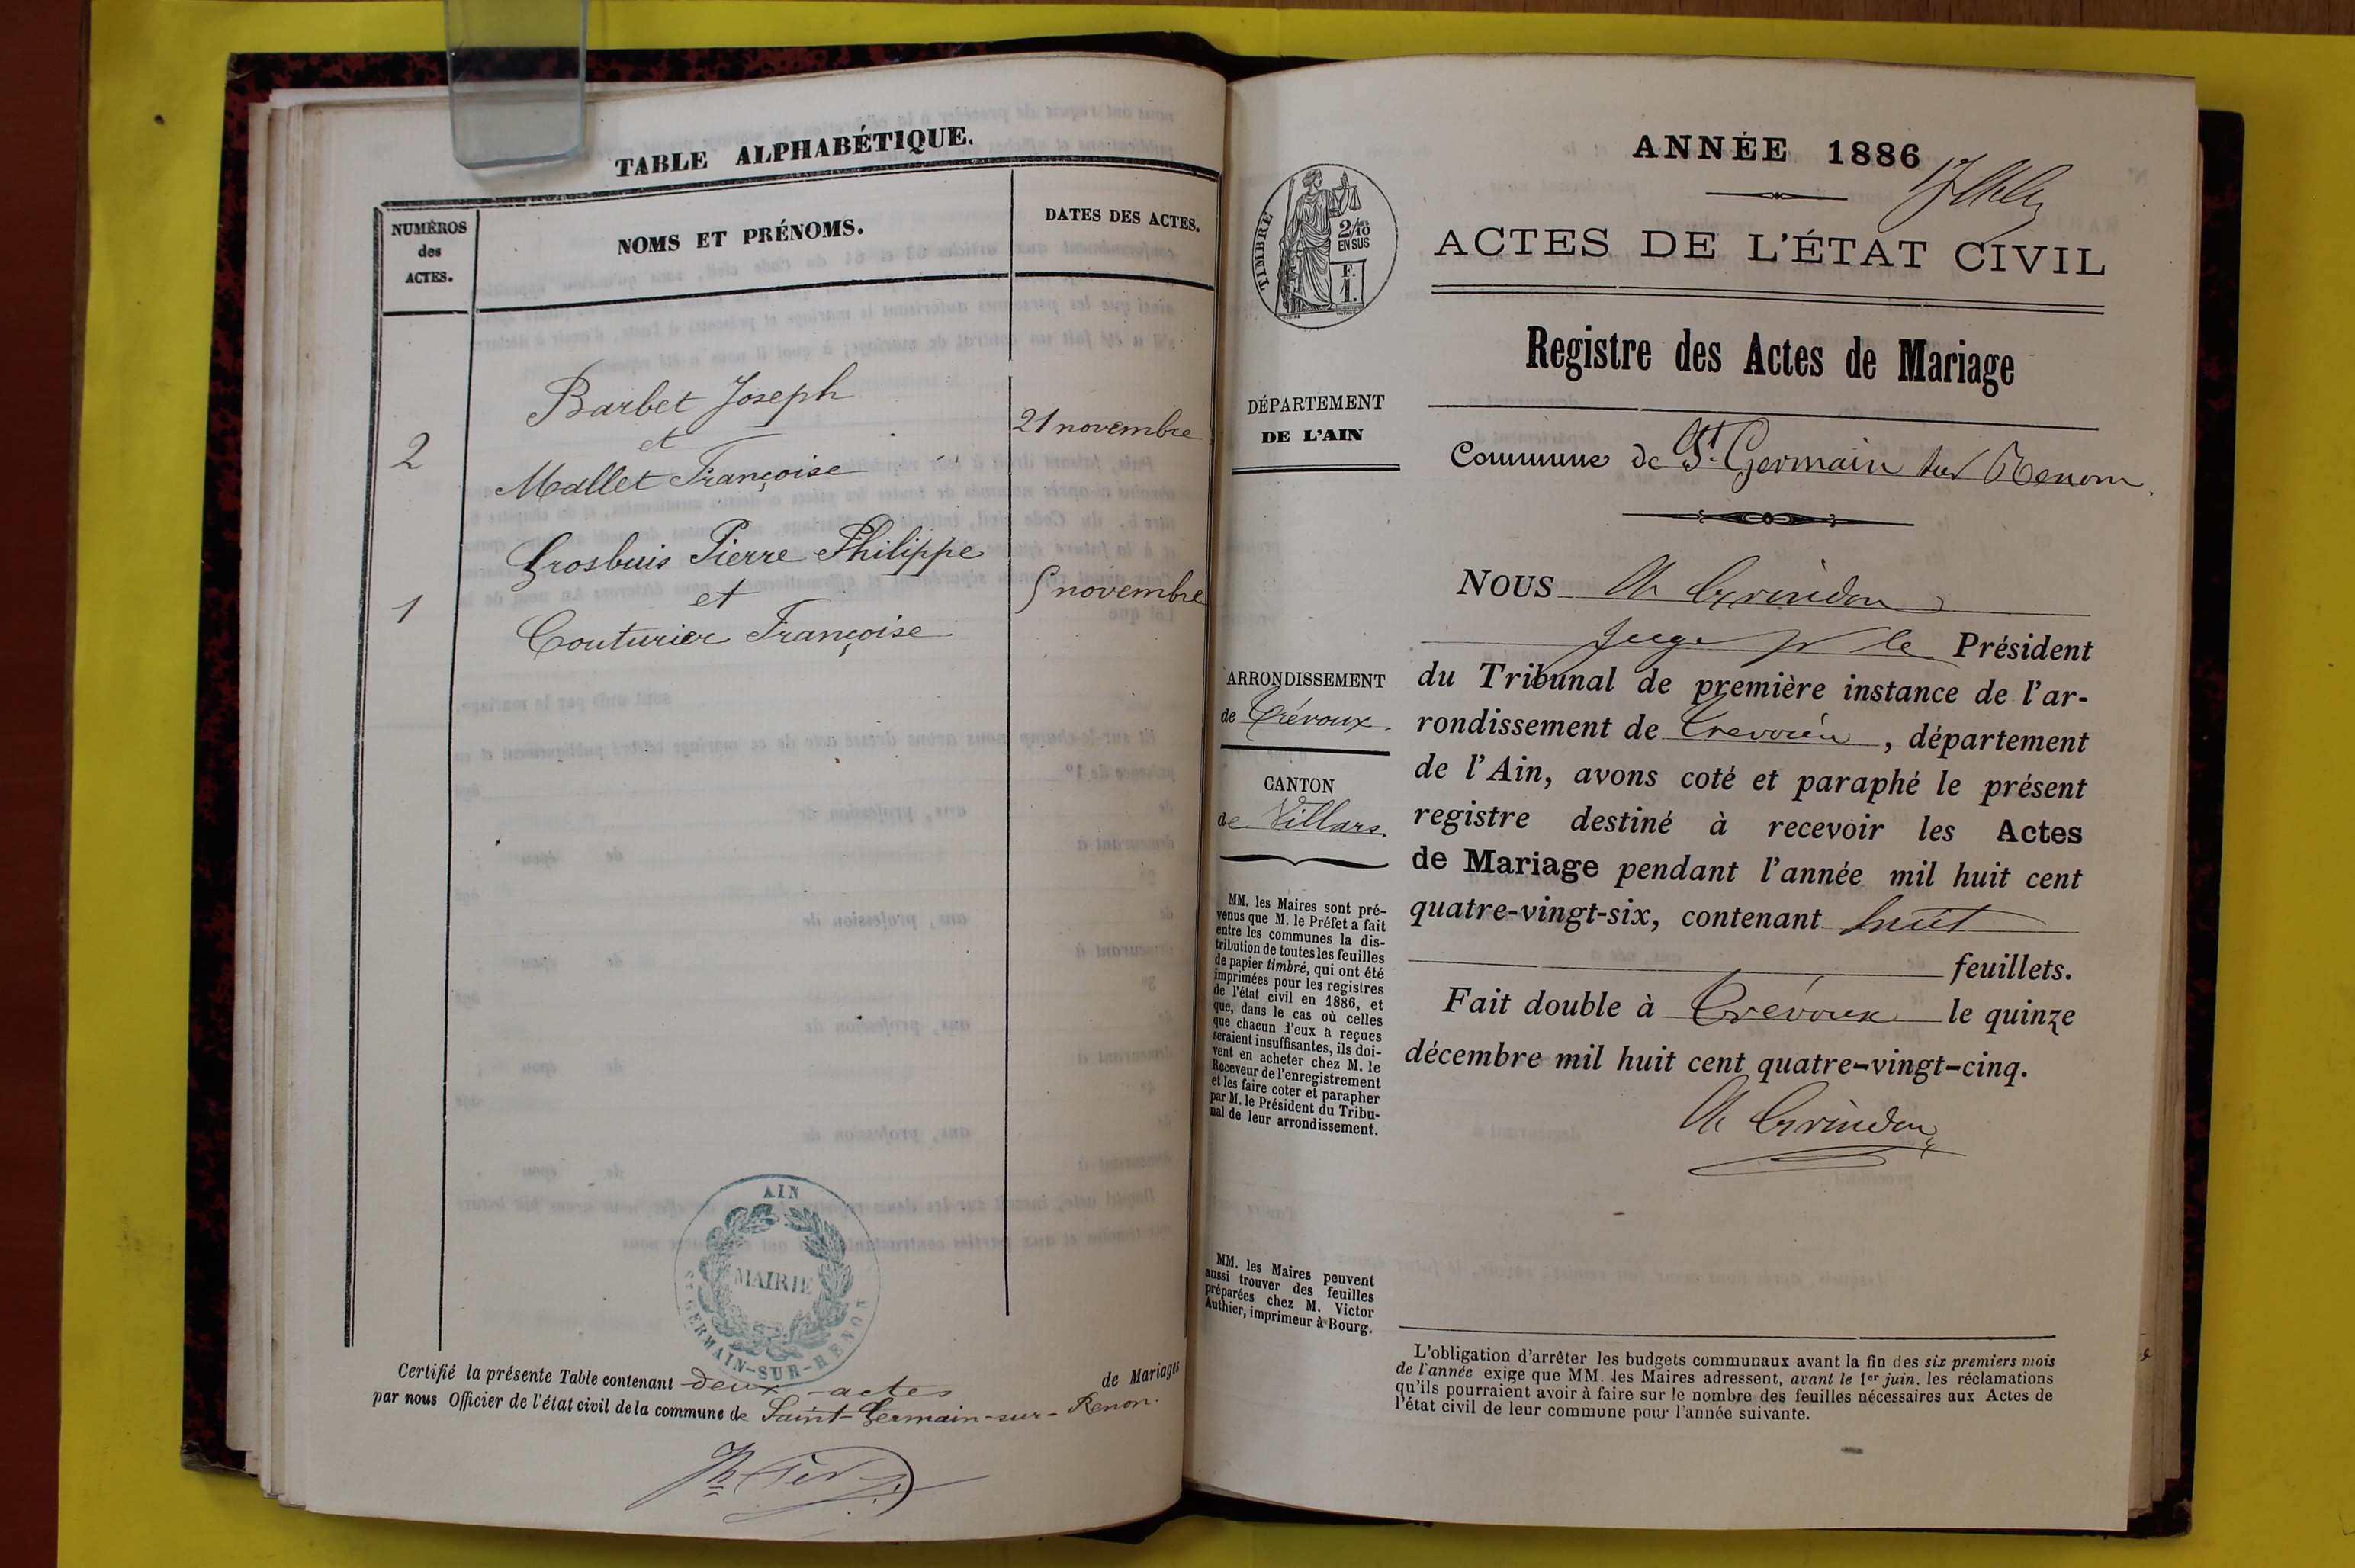 TABLE ALPHABÉTIQUE.
NUMÉROS
des
ACTES.
NOMS ET PRÉNOMS.
DATES DES ACTES.
Barbet Joseph
et
2
21 novembre
Mallet Françoise
Grosbuis Pierre Philippe
et
1
5 novembre
Couturier Françoise
AIN
MAIRIE
ST GERMAIN-SUR-RENON
Certifié la présente Table contenant deux actes de Mariages
par nous Officier de l'état civil de la commune de Saint-Germain-sur-Renon.
ANNÉE 1886
ACTES DE L'ÉTAT CIVIL
TIMBRE
2/10
EN SUS
F.
1.
Registre des Actes de Mariage
DÉPARTEMENT
DE L'AIN
Commune de St Germain sur Renom.
NOUS Ch Grindon
Juge pr le Président
du Tribunal de première instance de l'ar-
rondissement de Trévoux, département
de l'Ain, avons coté et paraphé le présent
registre destiné à recevoir les Actes
de Mariage pendant l'année mil huit cent
quatre-vingt-six, contenant huit
feuillets.
Fait double à Trévoux le quinze
décembre mil huit cent quatre-vingt-cinq.
Ch Grindon
ARRONDISSEMENT
de Trévoux.
CANTON
de Villars.
MM. les Maires sont pré-
venus que M. le Préfet a fait
entre les communes la dis-
tribution de toutes les feuilles
de papier timbré, qui ont été
imprimées pour les registres
de l'état civil en 1886, et
que, dans le cas où celles
que chacun d'eux a reçues
seraient insuffisantes, ils doi-
vent en acheter chez M. le
Receveur de l'enregistrement
et les faire coter et parapher
par M. le Président du Tribu-
nal de leur arrondissement.
MM. les Maires peuvent
aussi trouver des feuilles
préparées chez M. Victor
Authier, imprimeur à Bourg.
L'obligation d'arrêter les budgets communaux avant la fin des six premiers mois
de l'année exige que MM. les Maires adressent, avant le 1er juin, les réclamations
qu'ils pourraient avoir à faire sur le nombre des feuilles nécessaires aux Actes de
l'état civil de leur commune pour l'année suivante.